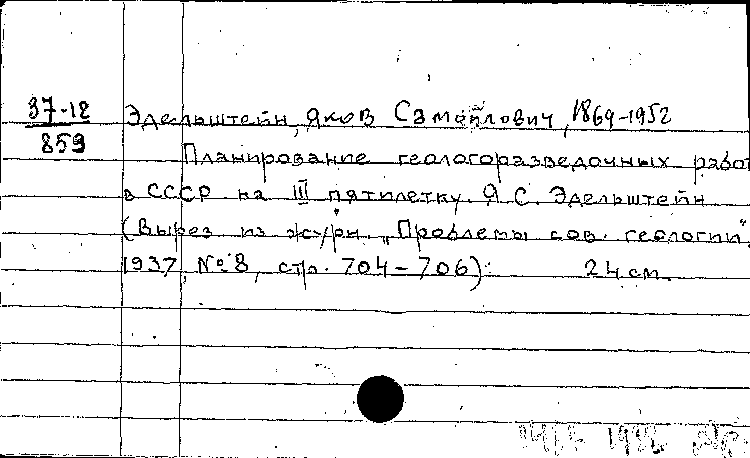 37-12
859
Эдельштейн, Яков Самойлович, 1869-1952
Планирование геологоразведочных работ
в СССР на III пятилетку. Я. С. Эдельштейн
(Вырез из журн. „Проблемы сов. геологии",
1937, № 8, стр. 704-706). 24 см.